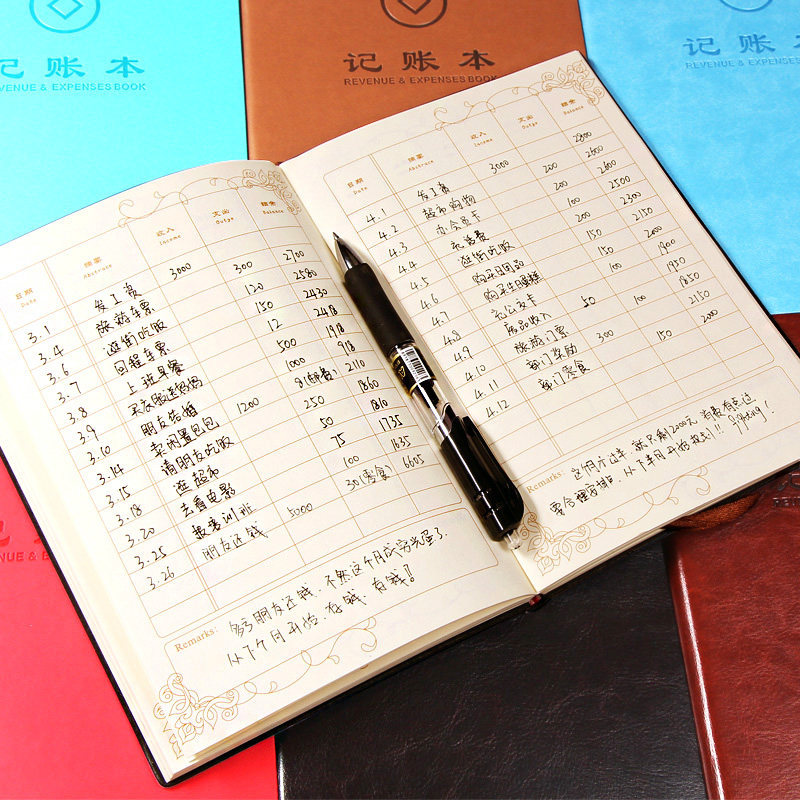 记账本
EVENUE & EXPENSES BOOK
记账本
REVENUE & EXPENSES BOOK
记账本
REVENUE & EXPENSES BOOK
NUE & EXPENSES
日期 摘要 收入 支出 余额
Date Abstrace Income Outgo Balance
3.1 发工资 3000 300 2700
3.4 旅游车票 120 2580
3.6 逛街吃饭 150 2430
3.7 回程车票 12 2418
3.8 上班早餐 500 1918
3.9 买衣服送妈妈 1000 918
3.10 朋友结婚 1200 8(邮费) 2110
3.14 卖闲置包包 250 1860
3.15 请朋友吃饭 50 1810
3.18 逛超市 75 1735
3.20 去看电影 100 1635
3.25 报培训班 30(零食) 6605
3.26 朋友还钱 5000
Remarks: 多亏朋友还钱、不然这个月成穷光蛋了.
从下个月开始、存钱、存钱!!
日期 摘要 收入 支出 余额
Date Abstrace Income Outgo Balance
4.1 发工资 3000 200 2800
4.2 超市购物 200 2600
4.3 办会员卡 100 2600
4.4 充话费 200 2500
4.5 逛街吃饭 150 2300
4.6 购买日用品 150 2150
4.7 购买生日蛋糕 100 2000
4.8 充公交卡 50 1900
4.9 废品收入 100 1950
4.10 旅游门票 300 1850
4.11 部门奖励 150 2150
4.12 部门零食 2000
Remarks: 这个月才过半、就只剩2000元 消费有点过
要合理安排、从下半月开始 fighting!